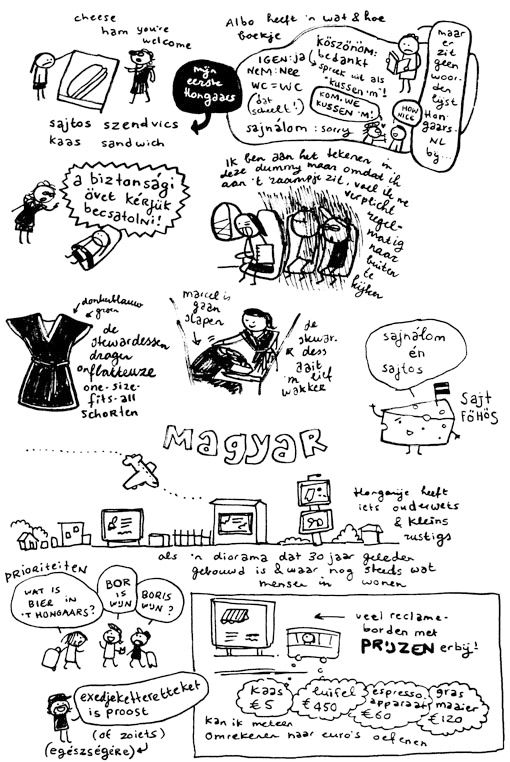 cheese
ham you're
welcome
sajtos szendvics
kaas sandwich
mijn
eerste
Hongaars
Albo heeft 'n wat & hoe
boekje
IGEN: ja
NEM: NEE
WC = WC
(dat
scheelt!)
sajnálom: sorry
köszönöm:
bedankt
spreek uit als
"kussen 'm"!
KOM, WE
KUSSEN 'M!
HOW
NICE
maar
er
zit
geen
woor-
den
lijst
Hon
gaars-
NL
bij...
a biztonsági
övet kérjük
becsatolni!
Ik ben aan het tekenen in
deze dummy maar omdat ik
aan 't raampje zit, voel ik me
verplicht
regel-
matig
naar
buiten
te
kijken
donkerblauw
groen
de
stewardessen
dragen
onflatteuze
one-size-
fits-all
schorten
marcel is
gaan
slapen
de
stewar-
dess
aait
'm lief
wakker
sajnálom
én
sajtos
Sajt
FŐHŐS
MAGYAR
Hongarije heeft
iets ouderwets
& kleins
rustigs
als 'n diorama dat 30 jaar geleden
gebouwd is & waar nog steeds wat
mensen in wonen
PRIORITEITEN
WAT IS
BIER IN
'T HONGAARS?
BOR
IS
WIJN
BORIS
WIJN?
exedjeketteretteket
is proost
(of zoiets)
(egészségére)
veel reclame-
borden met
PRIJZEN erbij!
kaas
€ 5
luifel
€ 450
espresso
apparaat
€ 60
gras
maaier
€ 120
kan ik meteen
omrekenen naar euro's oefenen